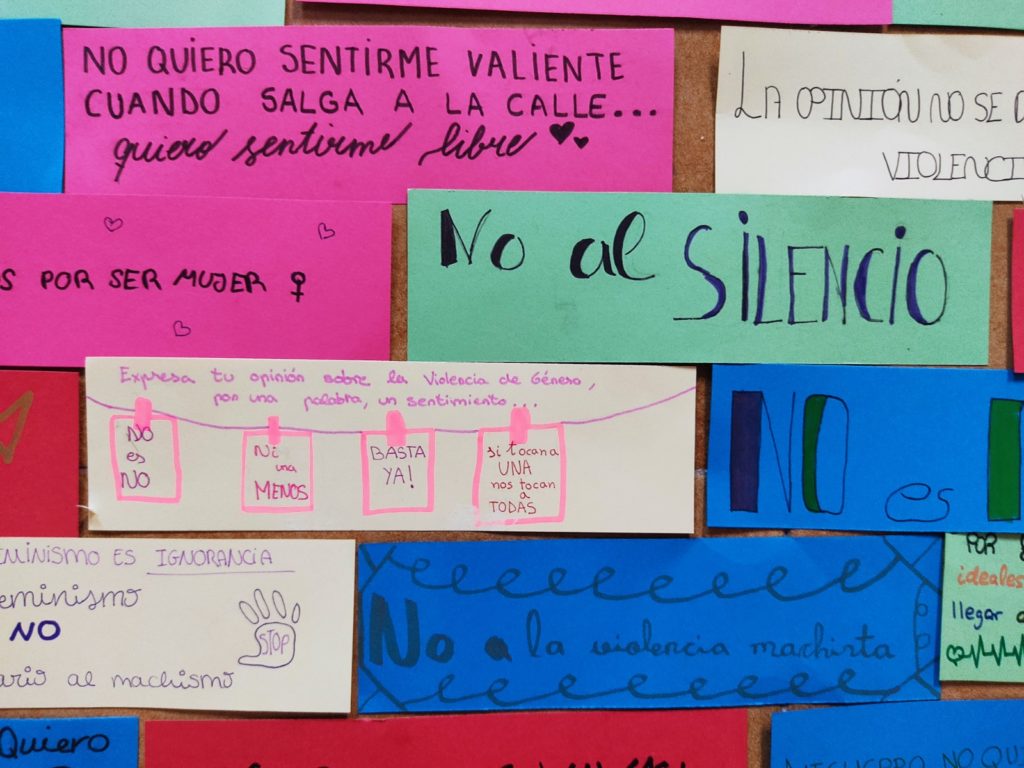 NO QUIERO SENTIRME VALIENTE
CUANDO SALGA A LA CALLE...
quiero sentirme libre
LA OPINIÓN NO SE
POR SER MUJER ♀
No al SILENCIO
Expresa tu opinión sobre la Violencia de Género,
por una palabra, un sentimiento...
NO
es
NO
Ni
una
MENOS
BASTA
YA!
si tocan a
UNA
nos tocan
a
TODAS
NO es
ES IGNORANCIA
NO
al machismo
STOP
No a la violencia machista
POR
ideales
llegar
Quiero
NO